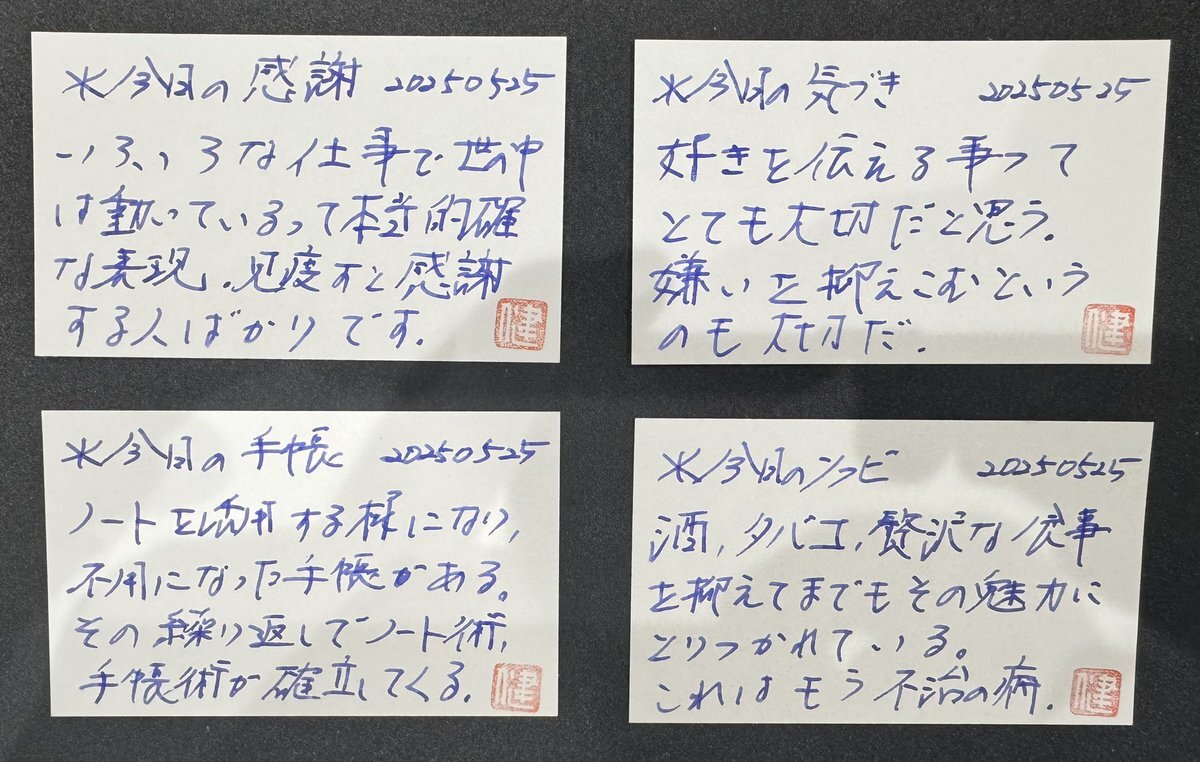 ※今日の感謝 20250525
いろいろな仕事で世の中
は動いているって本当に的確
な表現。見度すと感謝
する人ばかりです。
健
※今日の気づき 20250525
好きを伝える事って
とても大切だと思う。
嫌いを抑えこむという
のも大切だ。
健
※今日の手帳 20250525
ノートを活用する様になり、
不用になった手帳がある。
その繰り返しでノート術、
手帳術が確立してくる。
健
※今日の 20250525
酒、タバコ、贅沢な食事
を抑えてまでもその魅力に
とりつかれている。
これはもう不治の病。
健